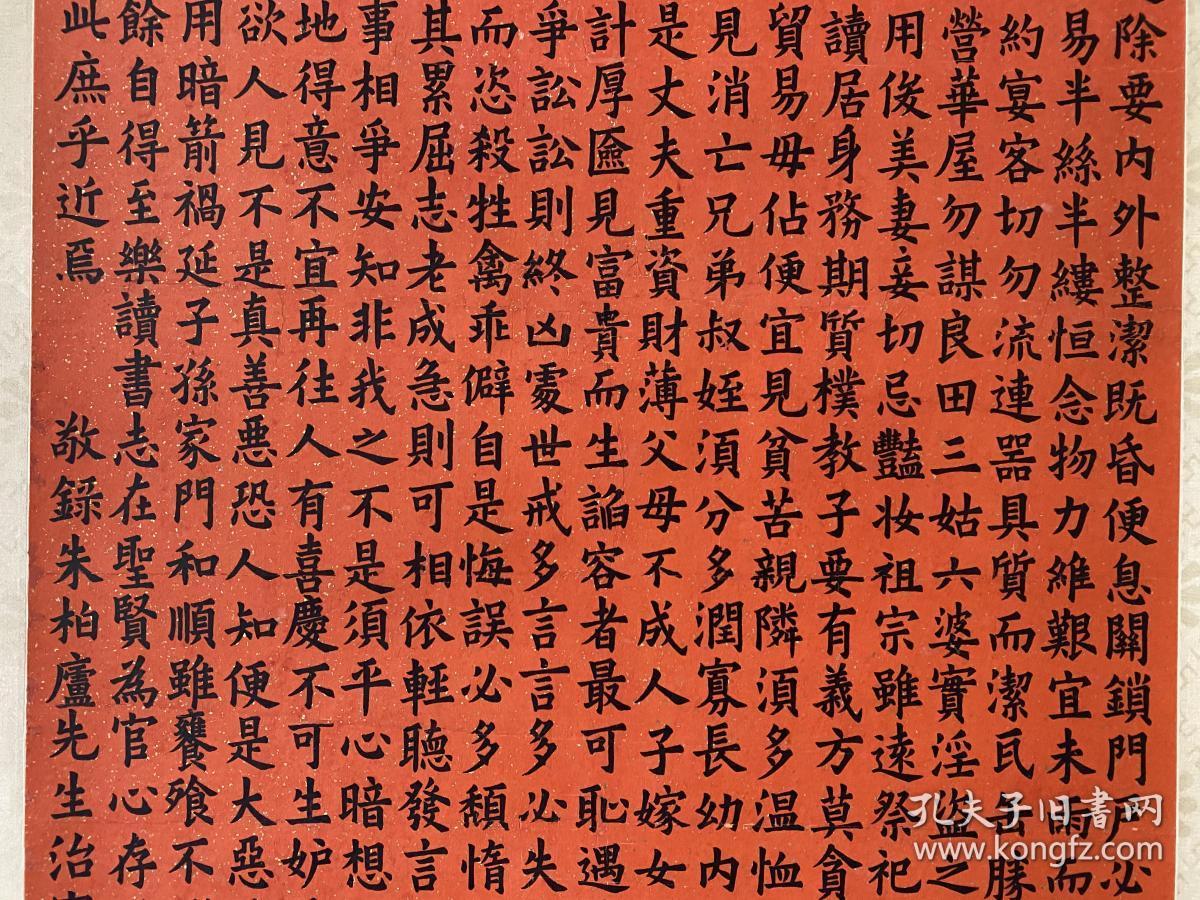 除要內外整潔既昏便息關鎖門户必
易半絲半縷恒念物力維艱宜未雨而
約宴客切勿流連器具質而潔瓦缶勝
營華屋勿謀良田三姑六婆實淫盜之
用俊美妻妾切忌豔妝祖宗雖遠祭祀
讀居身務期質樸教子要有義方莫貪
貿易毋佔便宜見貧苦親隣須多温恤
見消亡兄弟叔姪須分多潤寡長幼內
是丈夫重資財薄父母不成人子嫁女
計厚匳見富貴而生諂容者最可恥遇
爭訟訟則終凶處世戒多言言多必失
而恣殺牲禽乖僻自是悔誤必多頹惰
其累屈志老成急則可相依輕聽發言
事相爭安知非我之不是須平心暗想
地得意不宜再往人有喜慶不可生妒
欲人見不是真善惡恐人知便是大惡
用暗箭禍延子孫家門和順雖饔飱不
餘自得至樂讀書志在聖賢為官心存
此庶乎近焉 敬錄朱柏廬先生治
孔夫子旧書网
www.kongfz.com